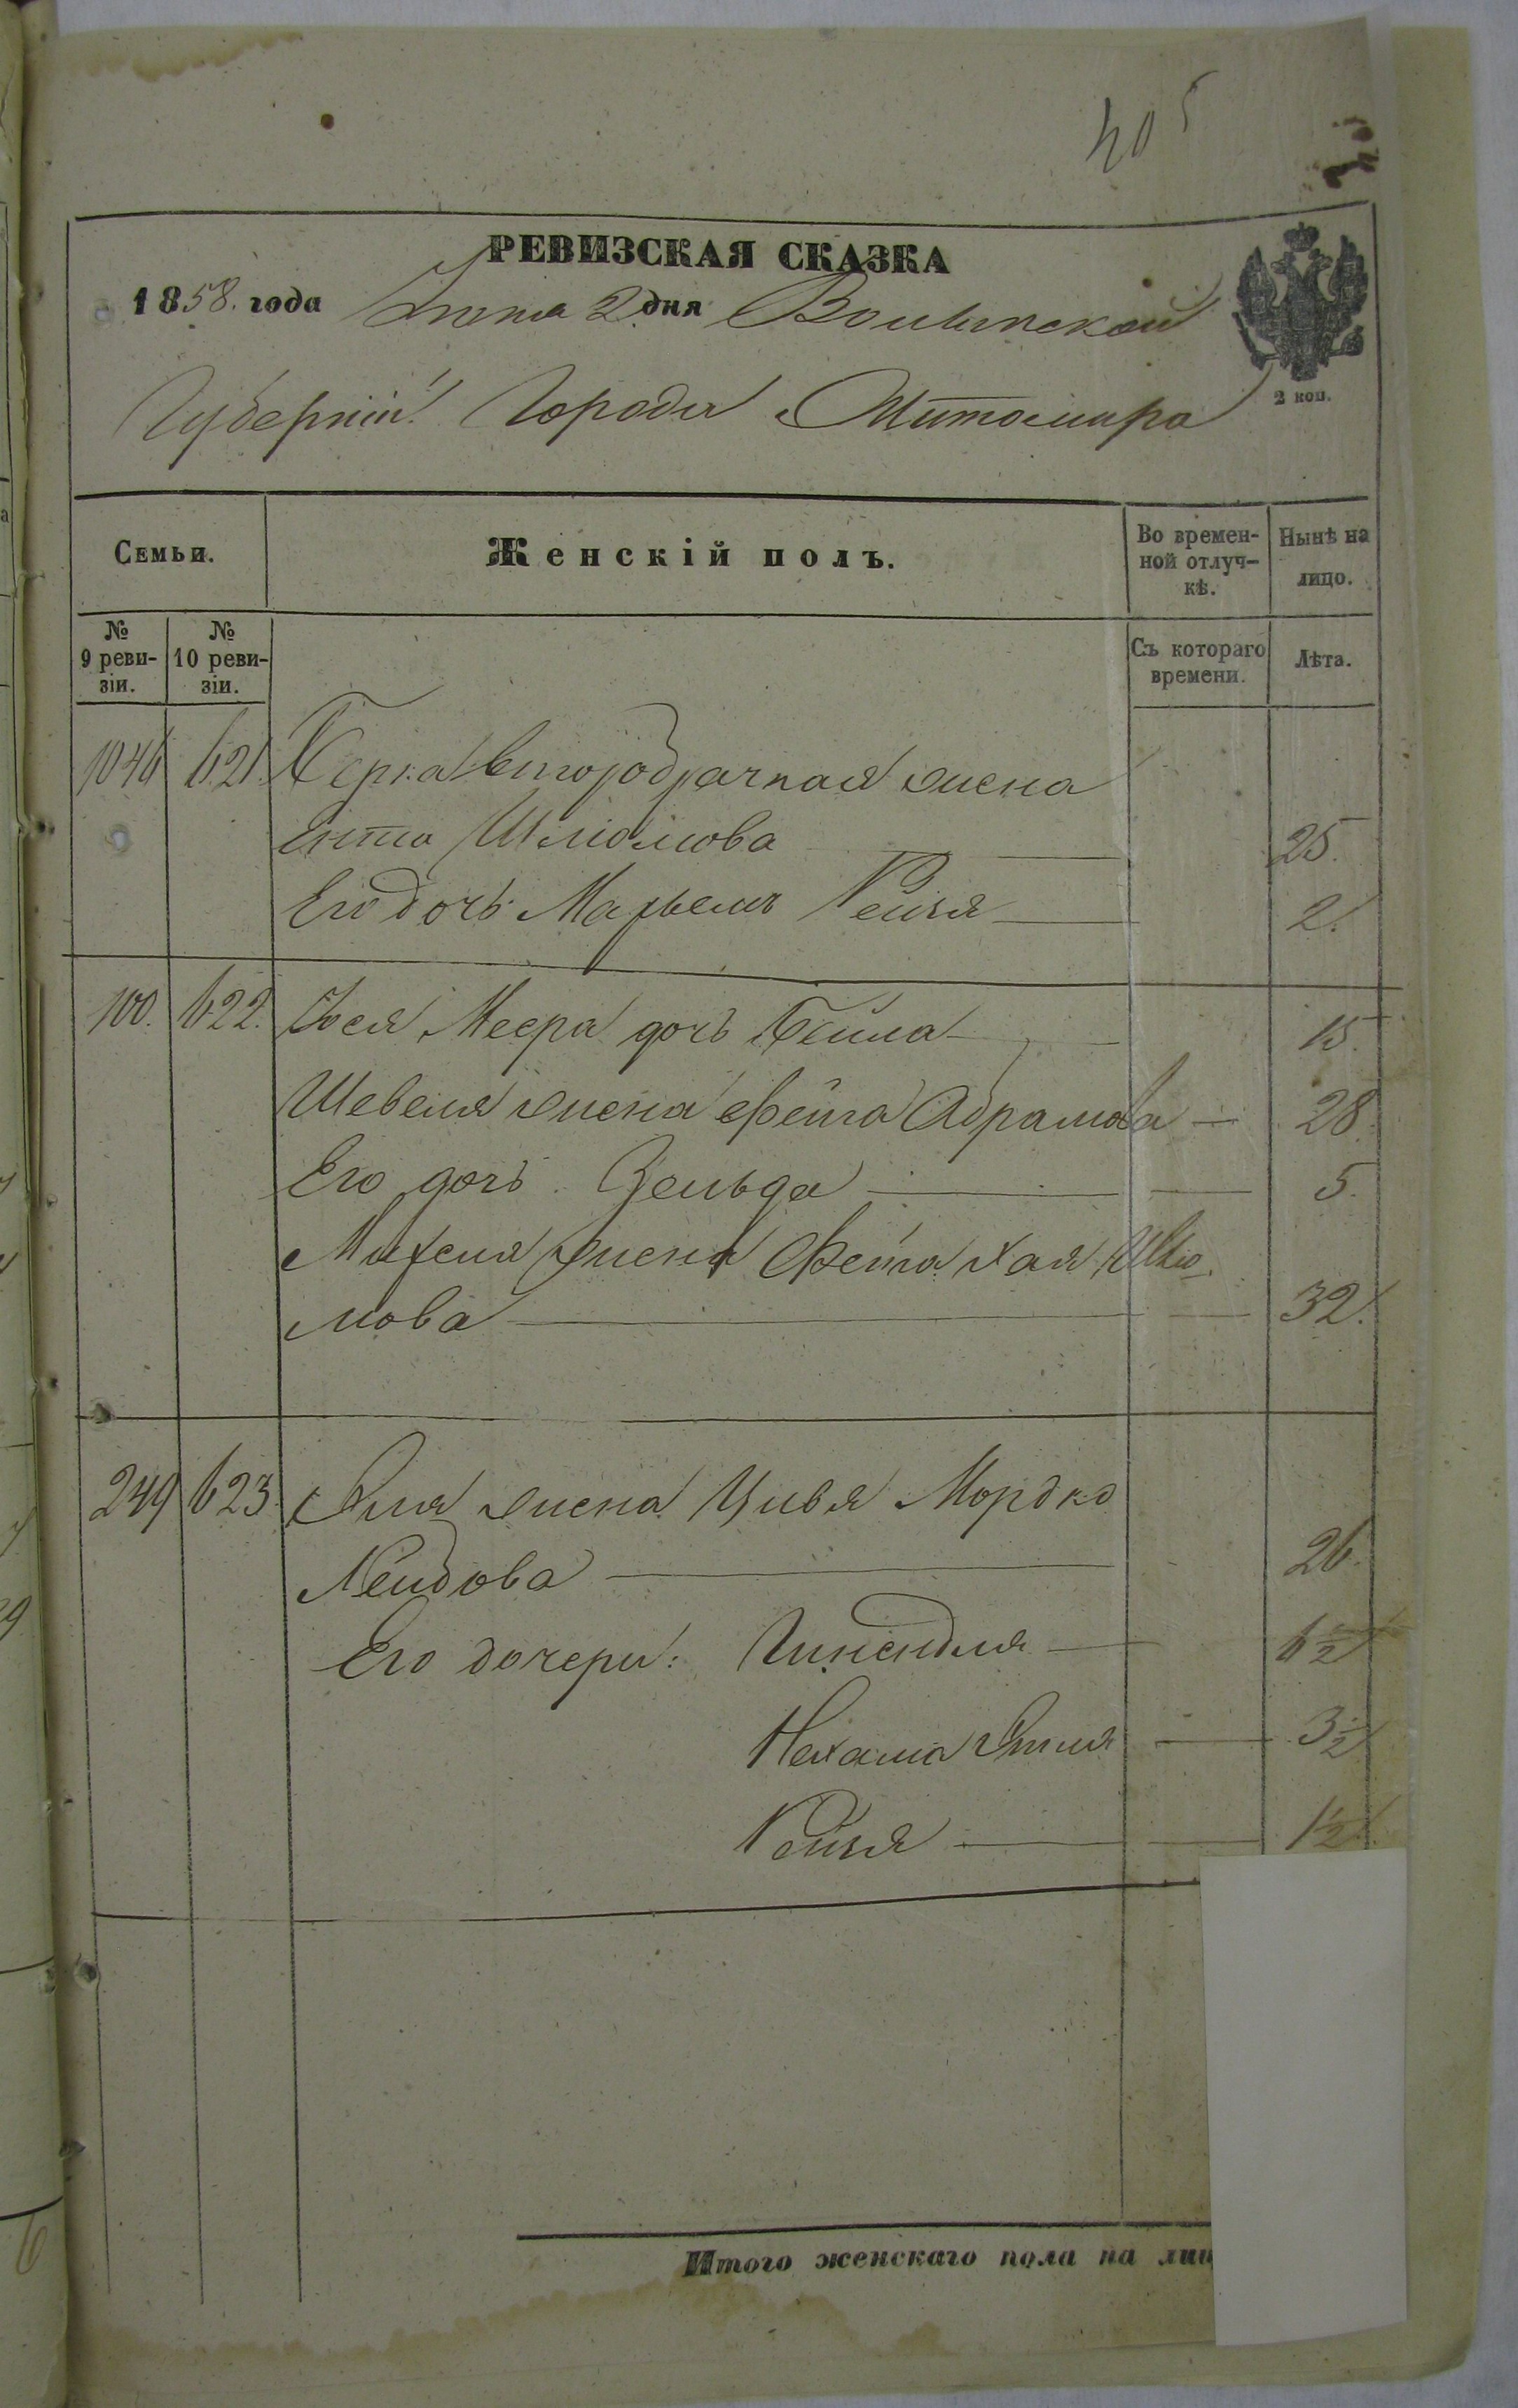 405
РЕВИЗСКАЯ СКАЗКА
1858. года Июня 2 дня Волынской
Губерніи Города Житомира
2 коп.
Семьи.
Женскій полъ.
Во времен-
ной отлуч-
кѣ.
Нынѣ на
лицо.
№
9 реви-
зіи.
№
10 реви-
зіи.
Съ котораго
времени.
Лѣта.
1046 621. Берка второбрачная жена
Ента Шліомова 25.
Его дочь Марьемъ Рейзя 2.
100. 622. Иося Меера дочь Бейла 15.
Шевеля жена Фейга Абрамова 28.
Его дочь Зельда 5.
Михеля жена Фейга Хая Шліо-
мова 32.
249 623. Эля жена Цивя Мордко
Лейбова 26.
Его дочери: Гинендля 6 1/2
Нехама Этля 3 1/2
Рейзя 1 1/2
Итого женскаго пола на лиц